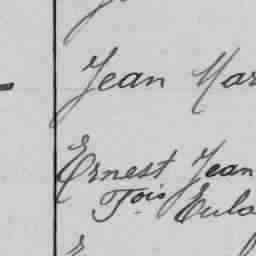 Jean Mar
Ernest Jean
Fois Eula